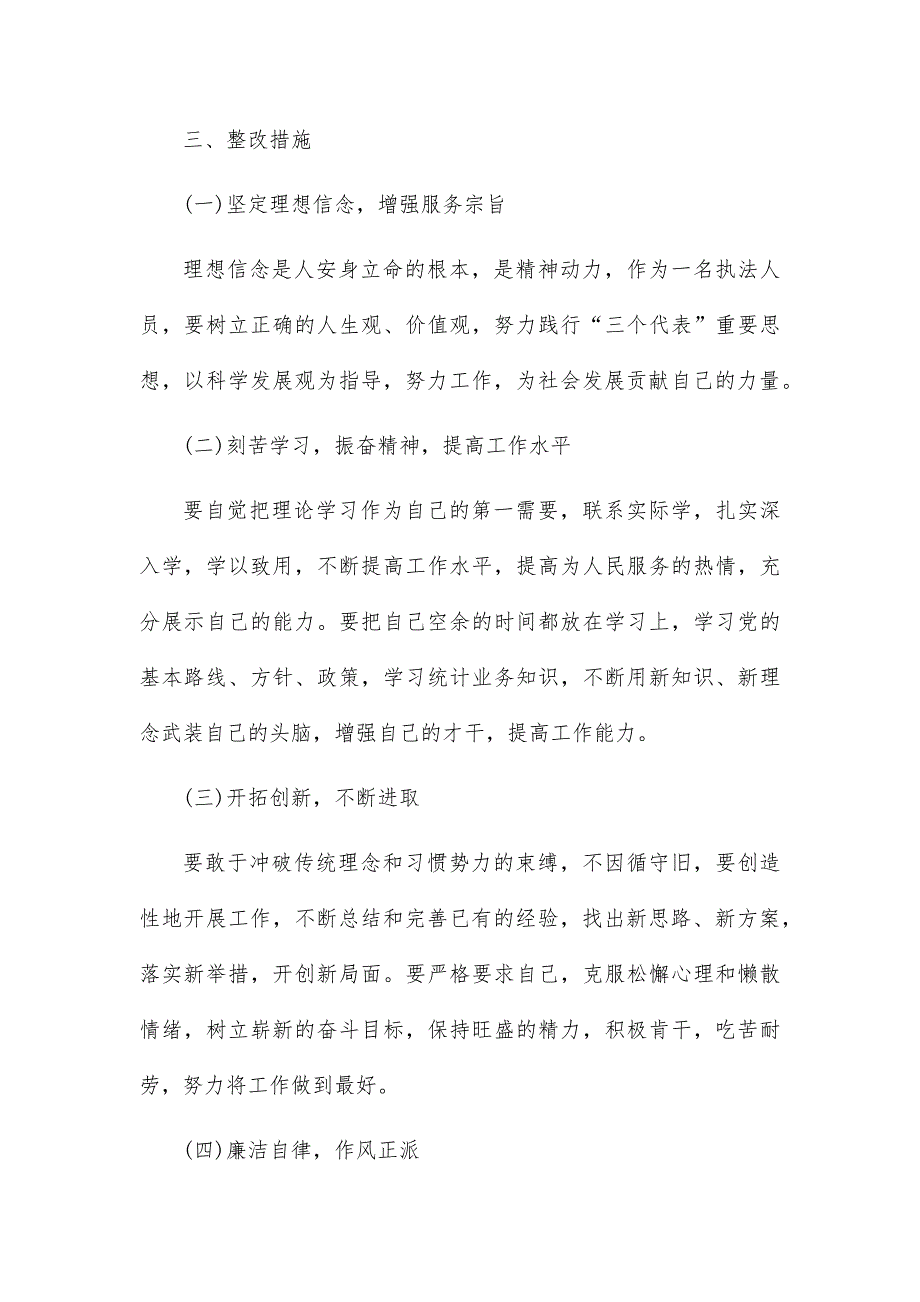 三、整改措施
(一)坚定理想信念，增强服务宗旨
理想信念是人安身立命的根本，是精神动力，作为一名执法人
员，要树立正确的人生观、价值观，努力践行“三个代表”重要思
想，以科学发展观为指导，努力工作，为社会发展贡献自己的力量。
(二)刻苦学习，振奋精神，提高工作水平
要自觉把理论学习作为自己的第一需要，联系实际学，扎实深
入学，学以致用，不断提高工作水平，提高为人民服务的热情，充
分展示自己的能力。要把自己空余的时间都放在学习上，学习党的
基本路线、方针、政策，学习统计业务知识，不断用新知识、新理
念武装自己的头脑，增强自己的才干，提高工作能力。
(三)开拓创新，不断进取
要敢于冲破传统理念和习惯势力的束缚，不因循守旧，要创造
性地开展工作，不断总结和完善已有的经验，找出新思路、新方案，
落实新举措，开创新局面。要严格要求自己，克服松懈心理和懒散
情绪，树立崭新的奋斗目标，保持旺盛的精力，积极肯干，吃苦耐
劳，努力将工作做到最好。
(四)廉洁自律，作风正派